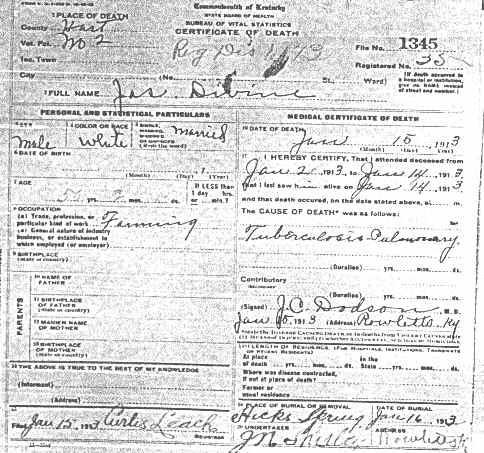 1 PLACE OF DEATH
Commonwealth of Kentucky
STATE BOARD OF HEALTH
BUREAU OF VITAL STATISTICS
CERTIFICATE OF DEATH
County Hart
Vot. Pct. No 2
File No. 1345
Registered No. 33
Inc. Town
City (No. St., Ward)
(If death occurred in a hospital or institution, give its NAME instead of street and number.)
2 FULL NAME Jas Divine
PERSONAL AND STATISTICAL PARTICULARS
3 SEX Male
4 COLOR OR RACE White
5 SINGLE, MARRIED, WIDOWED OR DIVORCED (Write the word) Married
6 DATE OF BIRTH
(Month) (Day) (Year)
7 AGE
yrs. mos. ds.
If LESS than 1 day hrs. or min.?
8 OCCUPATION
(a) Trade, profession, or particular kind of work Farming
(b) General nature of industry business, or establishment in which employed (or employer)
9 BIRTHPLACE
(State or country)
PARENTS
10 NAME OF FATHER
11 BIRTHPLACE OF FATHER
(State or country)
12 MAIDEN NAME OF MOTHER
13 BIRTHPLACE OF MOTHER
(State or country)
14 THE ABOVE IS TRUE TO THE BEST OF MY KNOWLEDGE
(Informant)
(Address)
15
Filed Jan 15, 1913 Curtis Leach
REGISTRAR
MEDICAL CERTIFICATE OF DEATH
16 DATE OF DEATH
Jan 15 1913
(Month) (Day) (Year)
17 I HEREBY CERTIFY, That I attended deceased from
Jan 2, 1913, to Jan 14, 1913
that I last saw him alive on Jan 14, 1913
and that death occurred, on the date stated above, at m.
The CAUSE OF DEATH* was as follows:
Tuberculosis Pulmonary
(Duration) yrs. mos. ds.
Contributory
(Duration) yrs. mos. ds.
(Signed) J.C. Dodson M.D.
Jan 1913 (Address) Rowletts Ky
18 LENGTH OF RESIDENCE (For Hospitals, Institutions, Transients or Recent Residents)
At place of death yrs. mos. ds. In the State yrs. mos. ds.
Where was disease contracted, if not at place of death?
Former or usual residence
19 PLACE OF BURIAL OR REMOVAL Hicks Spring
DATE OF BURIAL Jan 16, 1913
20 UNDERTAKER
ADDRESS Rowletts